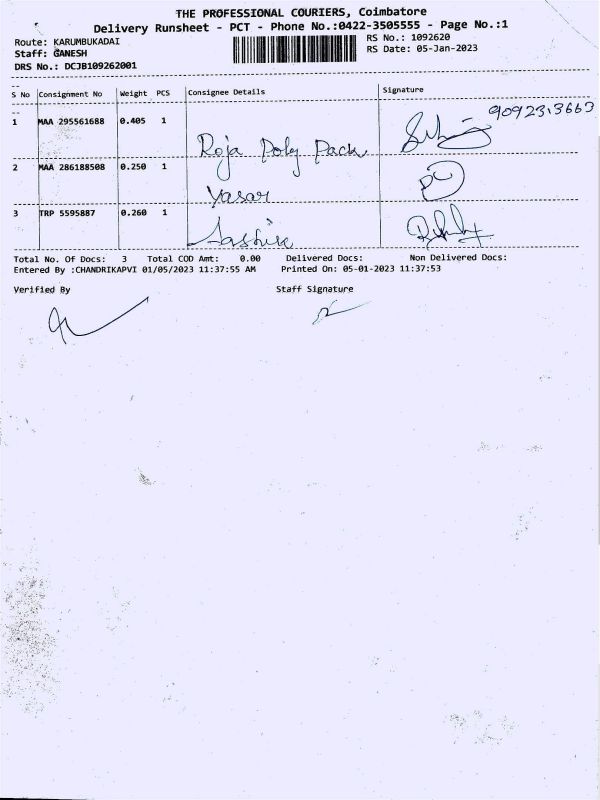 THE PROFESSIONAL COURIERS, Coimbatore
Delivery Runsheet - PCT - Phone No.:0422-3505555 - Page No.:1
Route: KARUMBUKADAI RS No.: 1092620
Staff: GANESH RS Date: 05-Jan-2023
DRS No.: DCJB109262001
S No Consignment No Weight PCS Consignee Details Signature
9092313663
1 MAA 295561688 0.405 1
Roja Poly Pack
2 MAA 286188508 0.250 1
Yasar
3 TRP 5595887 0.260 1
Aashik
Total No. Of Docs: 3 Total COD Amt: 0.00 Delivered Docs: Non Delivered Docs:
Entered By :CHANDRIKAPVI 01/05/2023 11:37:55 AM Printed On: 05-01-2023 11:37:53
Verified By Staff Signature